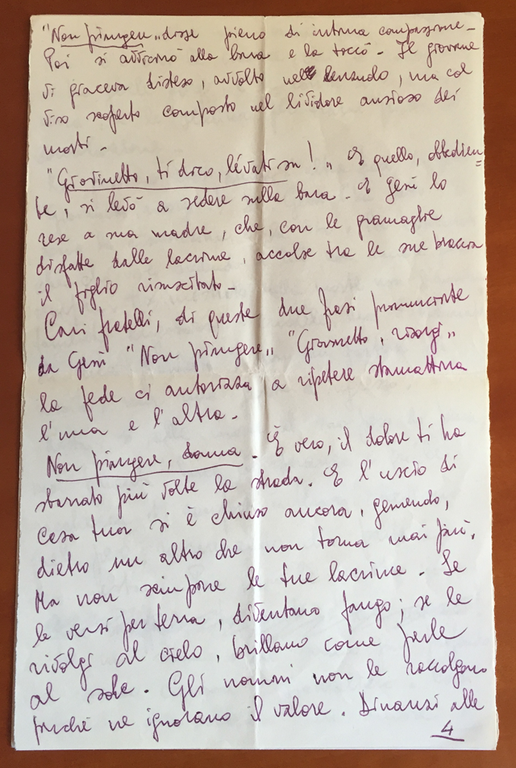 "Non piangere„ disse pieno di intima compassione-
Poi si avvicinò alla bara e la toccò- Il giovane
vi giaceva disteso, avvolto nel lenzuolo, ma col
viso scoperto composto nel lividore ansioso dei
morti-
"Giovinetto, ti dico, lévati su!„ E quello, obbedien=
te, si levò a sedere sulla bara- E Gesù lo
rese a sua madre, che, con le gramaglie
disfatte dalle lacrime, accolse tra le sue braccia
il figlio risuscitato-
Cari fratelli, di queste due frasi pronunciate
da Gesù "Non piangere„ "Giovinetto, risorgi„
la fede ci autorizza a ripetere stamattina
l'una e l'altra-
Non piangere, donna- È vero, il dolore ti ha
sbarrato più volte la strada. E l'uscio di
casa tua si è chiuso ancora, gemendo,
dietro un altro che non torna mai più.
Ma non sciupare le tue lacrime- Se
le versi per terra, diventano fango; se le
rivolgi al cielo, brillano come perle
al sole. Gli uomini non le raccolgono
perché ne ignorano il valore. Dinanzi alle
4